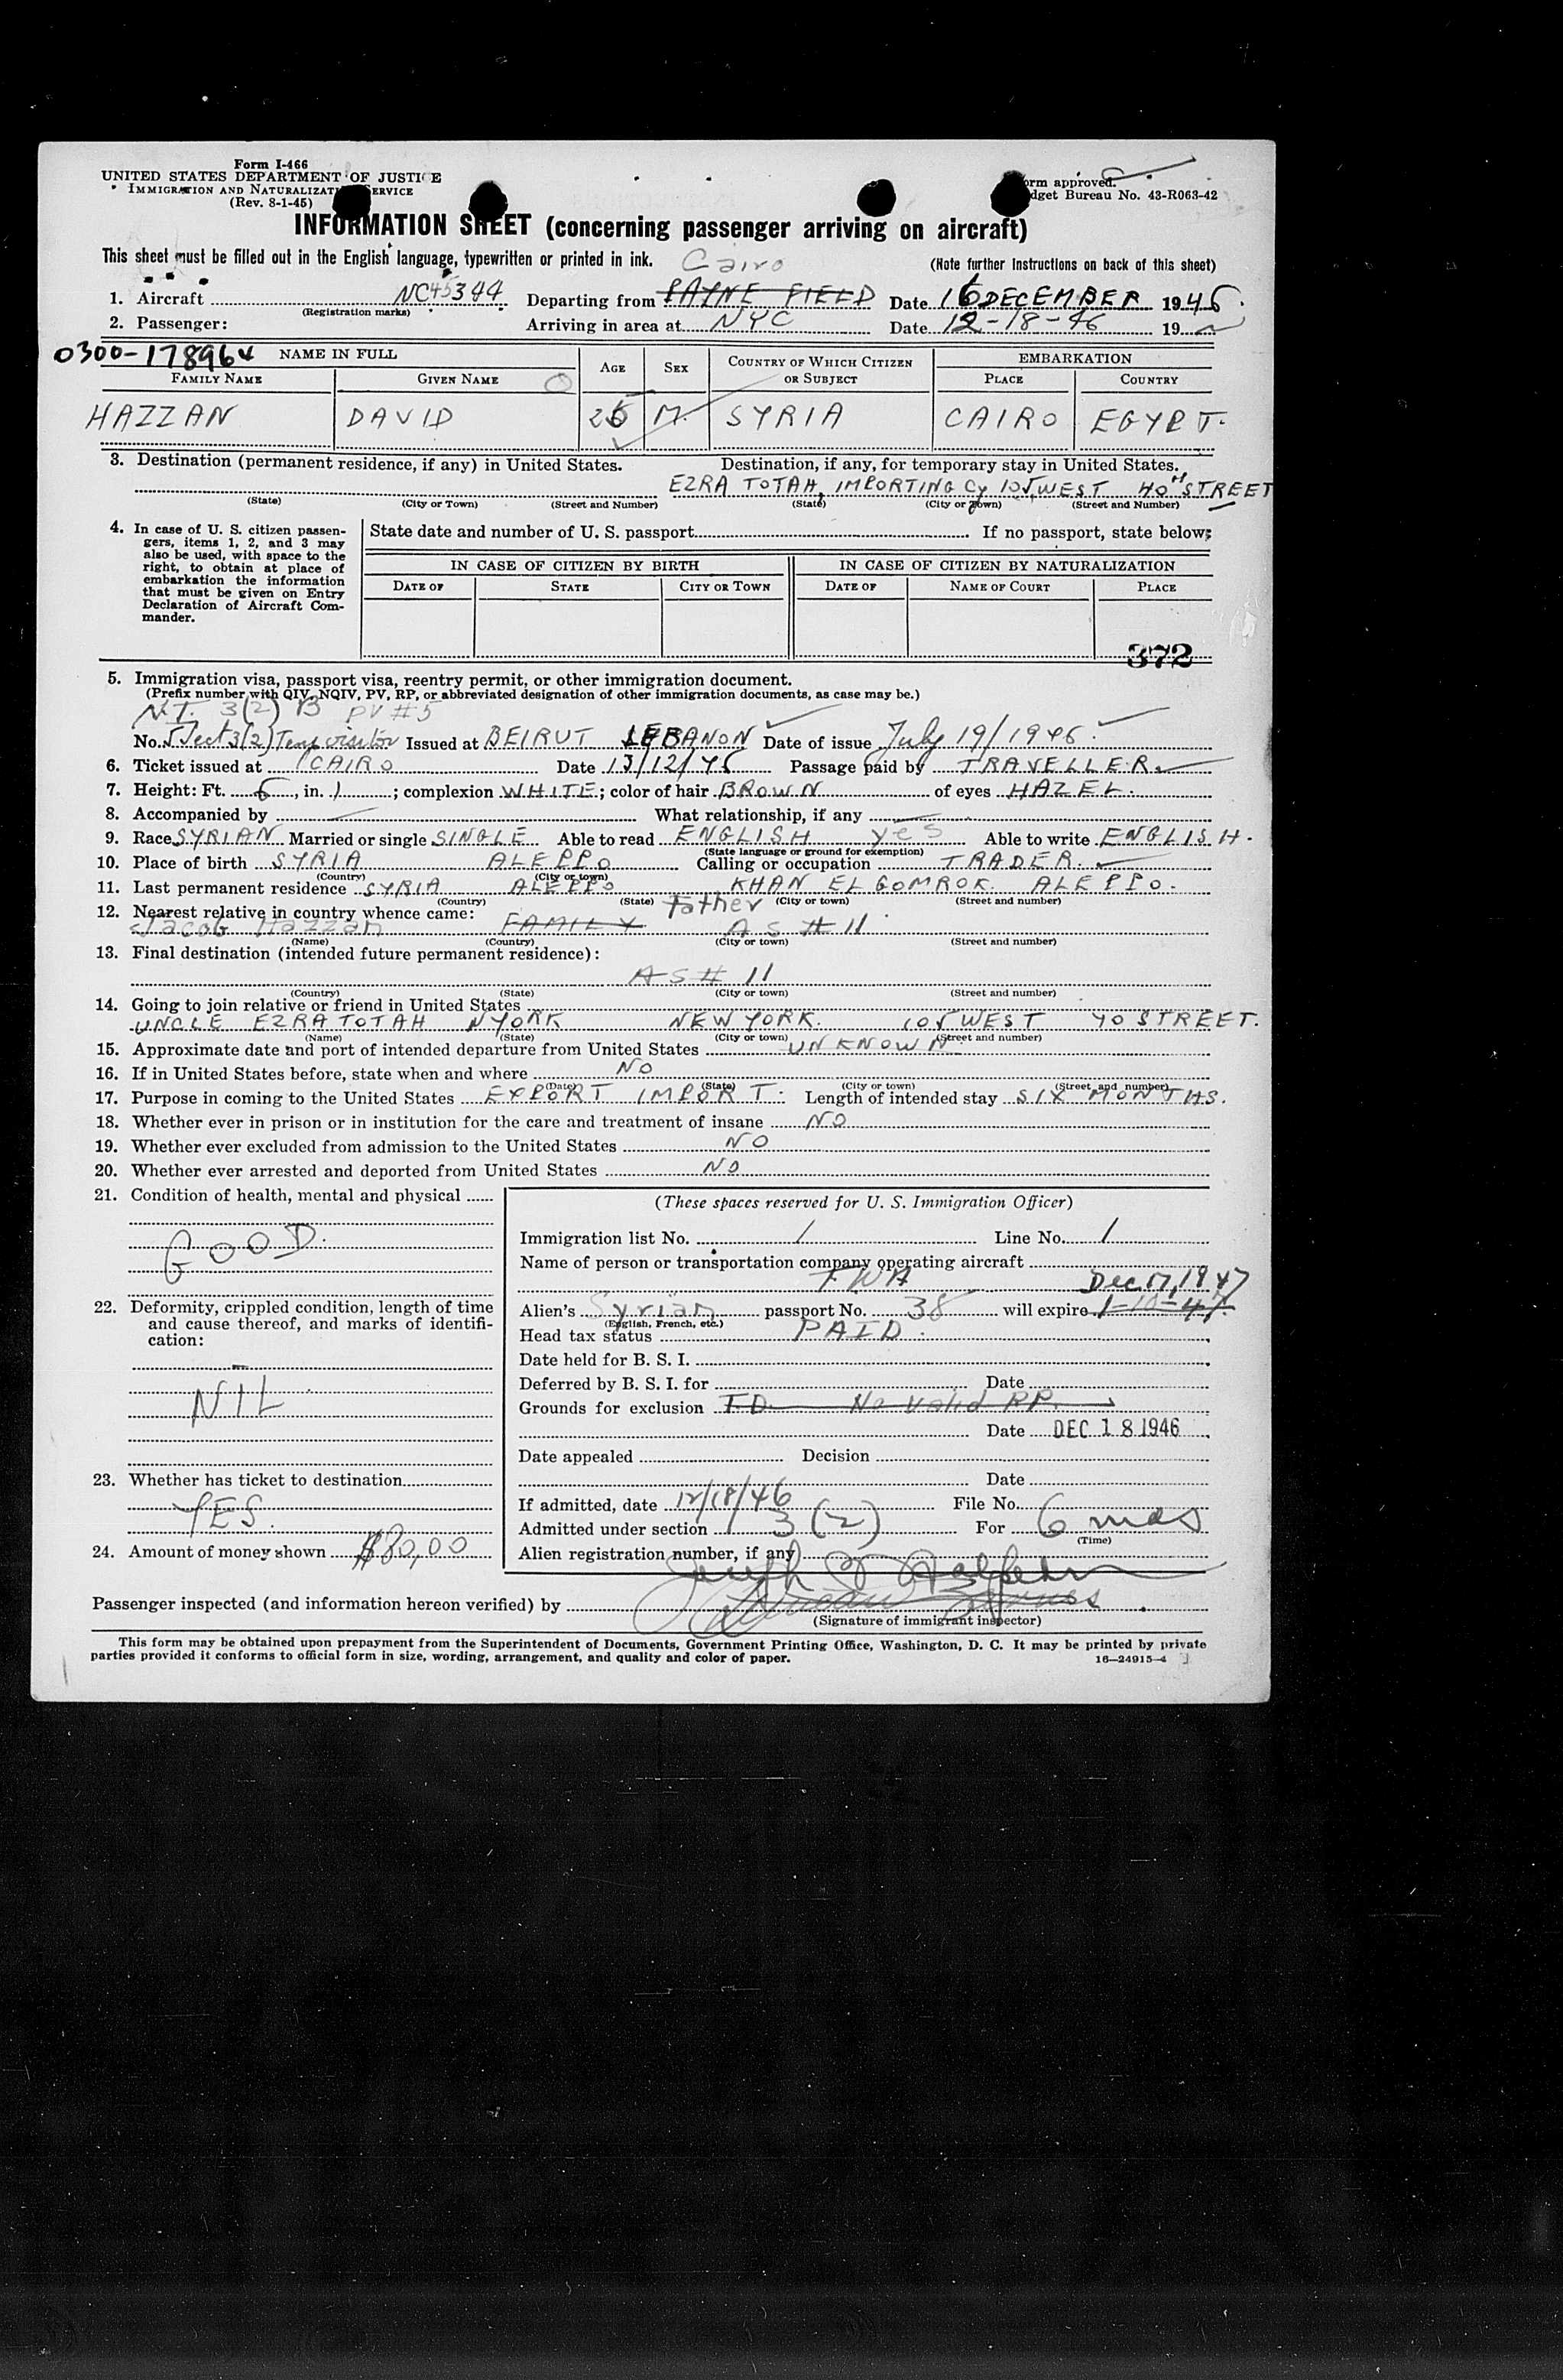 Form I-466
UNITED STATES DEPARTMENT OF JUSTICE
IMMIGRATION AND NATURALIZATI SERVICE
(Rev. 8-1-45)
orm approved.
dget Bureau No. 43-R063-42
INFORMATION SHEET (concerning passenger arriving on aircraft)
This sheet must be filled out in the English language, typewritten or printed in ink.
Cairo
(Note further instructions on back of this sheet)
1. Aircraft NC45344 Departing from PAYNE FIELD Date 16 DECEMBER 1946.
(Registration marks)
2. Passenger: Arriving in area at NYC Date 12-18-46 19
0300-178964 NAME IN FULL AGE SEX COUNTRY OF WHICH CITIZEN OR SUBJECT EMBARKATION
FAMILY NAME GIVEN NAME PLACE COUNTRY
HAZZAN DAVID 25 M. SYRIA CAIRO EGYPT.
3. Destination (permanent residence, if any) in United States. Destination, if any, for temporary stay in United States.
EZRA TOTAH, IMPORTING Cy 105, WEST 40TH STREET
(State) (City or Town) (Street and Number) (State) (City or Town) (Street and Number)
4. In case of U. S. citizen passengers, items 1, 2, and 3 may also be used, with space to the right, to obtain at place of embarkation the information that must be given on Entry Declaration of Aircraft Commander.
State date and number of U. S. passport If no passport, state below:
IN CASE OF CITIZEN BY BIRTH IN CASE OF CITIZEN BY NATURALIZATION
DATE OF STATE CITY OR TOWN DATE OF NAME OF COURT PLACE
372
5. Immigration visa, passport visa, reentry permit, or other immigration document.
(Prefix number with QIV, NQIV, PV, RP, or abbreviated designation of other immigration documents, as case may be.)
N.I. 3(2) B PV #5
No. 5 Sect 3(2) Temp visitor Issued at BEIRUT LEBANON Date of issue July 19/1946.
6. Ticket issued at CAIRO Date 13/12/46 Passage paid by TRAVELLER
7. Height: Ft. 6, in. 1; complexion WHITE; color of hair BROWN of eyes HAZEL.
8. Accompanied by What relationship, if any
9. Race SYRIAN Married or single SINGLE Able to read ENGLISH yes Able to write ENGLISH.
(State language or ground for exemption)
10. Place of birth SYRIA ALEPPO Calling or occupation TRADER.
(Country) (City or town)
11. Last permanent residence SYRIA ALEPPO KHAN EL GOMROK. ALEPPO.
(Country) (State) (City or town) (Street and number)
12. Nearest relative in country whence came: Father
Jacob Hazzan FAMILY AS # 11
(Name) (Country) (City or town) (Street and number)
13. Final destination (intended future permanent residence):
AS # 11
(Country) (State) (City or town) (Street and number)
14. Going to join relative or friend in United States
UNCLE EZRA TOTAH NYORK NEW YORK. 105 WEST 40 STREET.
(Name) (State) (City or town) (Street and number)
15. Approximate date and port of intended departure from United States UNKNOWN
16. If in United States before, state when and where NO
(Date) (State) (City or town) (Street and number)
17. Purpose in coming to the United States EXPORT IMPORT. Length of intended stay SIX MONTHS.
18. Whether ever in prison or in institution for the care and treatment of insane NO
19. Whether ever excluded from admission to the United States NO
20. Whether ever arrested and deported from United States NO
21. Condition of health, mental and physical
GOOD.
22. Deformity, crippled condition, length of time and cause thereof, and marks of identification:
NIL
23. Whether has ticket to destination
YES.
24. Amount of money shown $80,00
(These spaces reserved for U. S. Immigration Officer)
Immigration list No. 1 Line No. 1
Name of person or transportation company operating aircraft
TWA Dec 17, 1947
Alien's Syrian passport No. 38 will expire 1-10-47
(English, French, etc.)
Head tax status PAID.
Date held for B. S. I.
Deferred by B. S. I. for Date
Grounds for exclusion I.D. No valid PP.
Date DEC 18 1946
Date appealed Decision
Date
If admitted, date 12/18/46 File No.
Admitted under section 3 (2) For 6 mos
(Time)
Alien registration number, if any
Passenger inspected (and information hereon verified) by
(Signature of immigrant inspector)
This form may be obtained upon prepayment from the Superintendent of Documents, Government Printing Office, Washington, D. C. It may be printed by private
parties provided it conforms to official form in size, wording, arrangement, and quality and color of paper.
16—24915-4